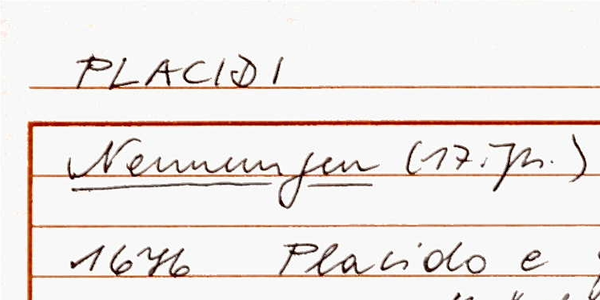 PLACIDI
Nennungen (17. Jh.)
1676 Placido e